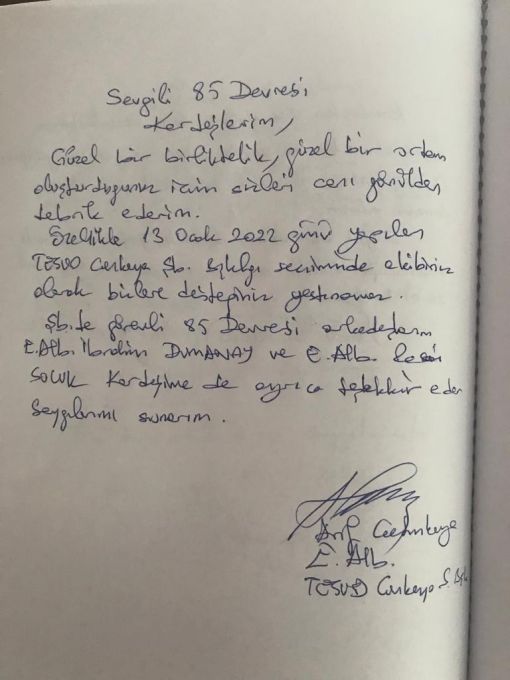 Sevgili 85 Devresi
Kardeşlerim,
Güzel bir birliktelik, güzel bir ortam
oluşturduğunuz için sizleri canı gönülden
tebrik ederim.
Özellikle 13 Ocak 2022 günü yapılan
TESUD Çankaya Şb. Bşklığı seçiminde ekibiniz
olarak bizlere desteğiniz yadsınamaz.
Şb.te görevli 85 Devresi arkadaşlarım
E.Alb. İbrahim DUMANAY ve E. Alb.
SOCUK Kardeşime de ayrıca teşekkür eder
Saygılarımı sunarım.
Arif
E. Alb.
TESUD Çankaya Ş. Bşk.